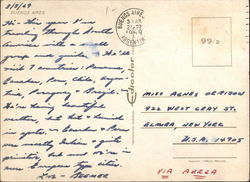 BUENOS AIRES
3/3/69
Hi - This year I'm
traveling through South
America with a small
group and a guide. We'll
visit 7 countries: Panama,
Ecuador, Peru, Chile, Argen-
tina, Paraguay & Brazil.
We're having beautiful
weather, but hot & humid
in spots. Ecuador & Peru
are mostly Indian & quite
primitive, but now in
more European type cities.
BUENOS AIRES
21-22
1969
ARGENTINA
99/2
dicolor
MISS AGNES
922 WEST GRAY ST.
ELMIRA, NEW YORK
U.S.A. 14905
VIA AEREA